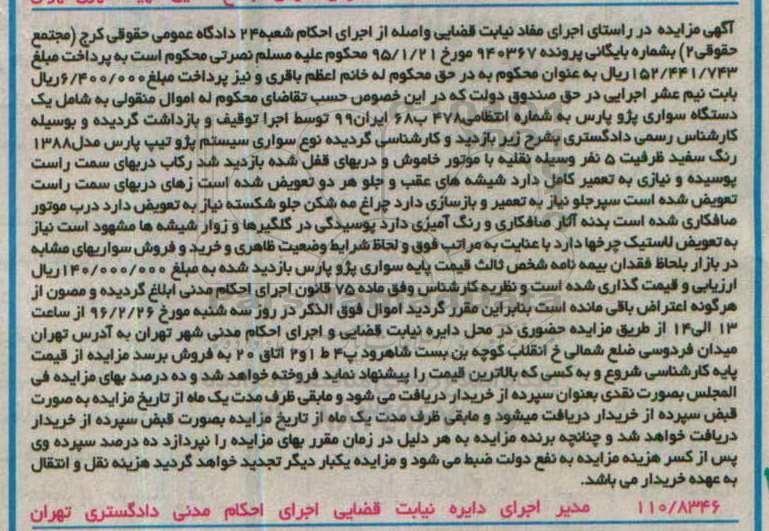 آگهی مزایده در راستای اجرای مفاد نیابت قضایی واصله از اجرای احکام شعبه۲۴ دادگاه عمومی حقوقی کرج (مجتمع
حقوقی۲) بشماره بایگانی پرونده ۹۴۰۳۶۷ مورخ ۹۵/۱/۲۱ محکوم علیه مسلم نصرتی محکوم است به پرداخت مبلغ
۱۵۲/۴۴۱/۷۴۳ ریال به عنوان محکوم به در حق محکوم له خانم اعظم باقری و نیز پرداخت مبلغ۶/۴۰۰/۰۰۰ریال
بابت نیم عشر اجرایی در حق صندوق دولت که در این خصوص حسب تقاضای محکوم له اموال منقولی به شامل یک
دستگاه سواری پژو پارس به شماره انتظامی۴۷۸ ب۶۸ ایران۹۹ توسط اجرا توقیف و بازداشت گردیده و بوسیله
کارشناس رسمی دادگستری بشرح زیر بازدید و کارشناسی گردیده نوع سواری سیستم پژو تیپ پارس مدل۱۳۸۸
رنگ سفید ظرفیت ۵ نفر وسیله نقلیه با موتور خاموش و دربهای قفل شده بازدید شد رکاب دربهای سمت راست
پوسیده و نیازی به تعمیر کامل دارد شیشه های عقب و جلو هر دو تعویض شده است زهای دربهای سمت راست
تعویض شده است سپرجلو نیاز به تعمیر و بازسازی دارد چراغ مه شکن جلو شکسته نیاز به تعویض دارد درب موتور
صافکاری شده است بدنه آثار صافکاری و رنگ آمیزی دارد پوسیدگی در گلگیرها و زوار شیشه ها مشهود است نیاز
به تعویض لاستیک چرخها دارد با عنایت به مراتب فوق و لحاظ شرایط وضعیت ظاهری و خرید و فروش سواریهای مشابه
در بازار بلحاظ فقدان بیمه نامه شخص ثالث قیمت پایه سواری پژو پارس بازدید شده به مبلغ ۱۴۰/۰۰۰/۰۰۰ریال
ارزیابی و قیمت گذاری شده است و نظریه کارشناس وفق ماده ۷۵ قانون اجرای احکام مدنی ابلاغ گردیده و مصون از
هرگونه اعتراض باقی مانده است بنابراین مقرر گردید اموال فوق الذکر در روز سه شنبه مورخ ۹۶/۲/۲۶ از ساعت
۱۳ الی۱۴ از طریق مزایده حضوری در محل دایره نیابت قضایی و اجرای احکام مدنی شهر تهران به آدرس تهران
میدان فردوسی ضلع شمالی خ انقلاب کوچه بن بست شاهرود پ۴ ط ۱و۲ اتاق ۲۰ به فروش برسد مزایده از قیمت
پایه کارشناسی شروع و به کسی که بالاترین قیمت را پیشنهاد نماید فروخته خواهد شد و ده درصد بهای مزایده فی
المجلس بصورت نقدی بعنوان سپرده از خریدار دریافت می شود و مابقی ظرف مدت یک ماه از تاریخ مزایده به صورت
قبض سپرده از خریدار دریافت میشود و مابقی ظرف مدت یک ماه از تاریخ مزایده بصورت قبض سپرده از خریدار
دریافت خواهد شد و چنانچه برنده مزایده به هر دلیل در زمان مقرر بهای مزایده را نپردازد ده درصد سپرده وی
پس از کسر هزینه مزایده به نفع دولت ضبط می شود و مزایده یکبار دیگر تجدید خواهد گردید هزینه نقل و انتقال
به عهده خریدار می باشد.
۱۱۰/۸۳۴۶ مدیر اجرای دایره نیابت قضایی اجرای احکام مدنی دادگستری تهران